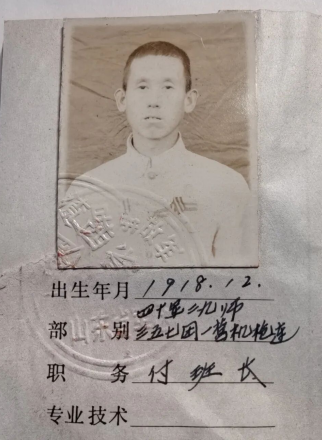 出生年月 1918.12.
四十军一一九师
部 别 三五七团一营机枪连
职 务 付班长
专业技术